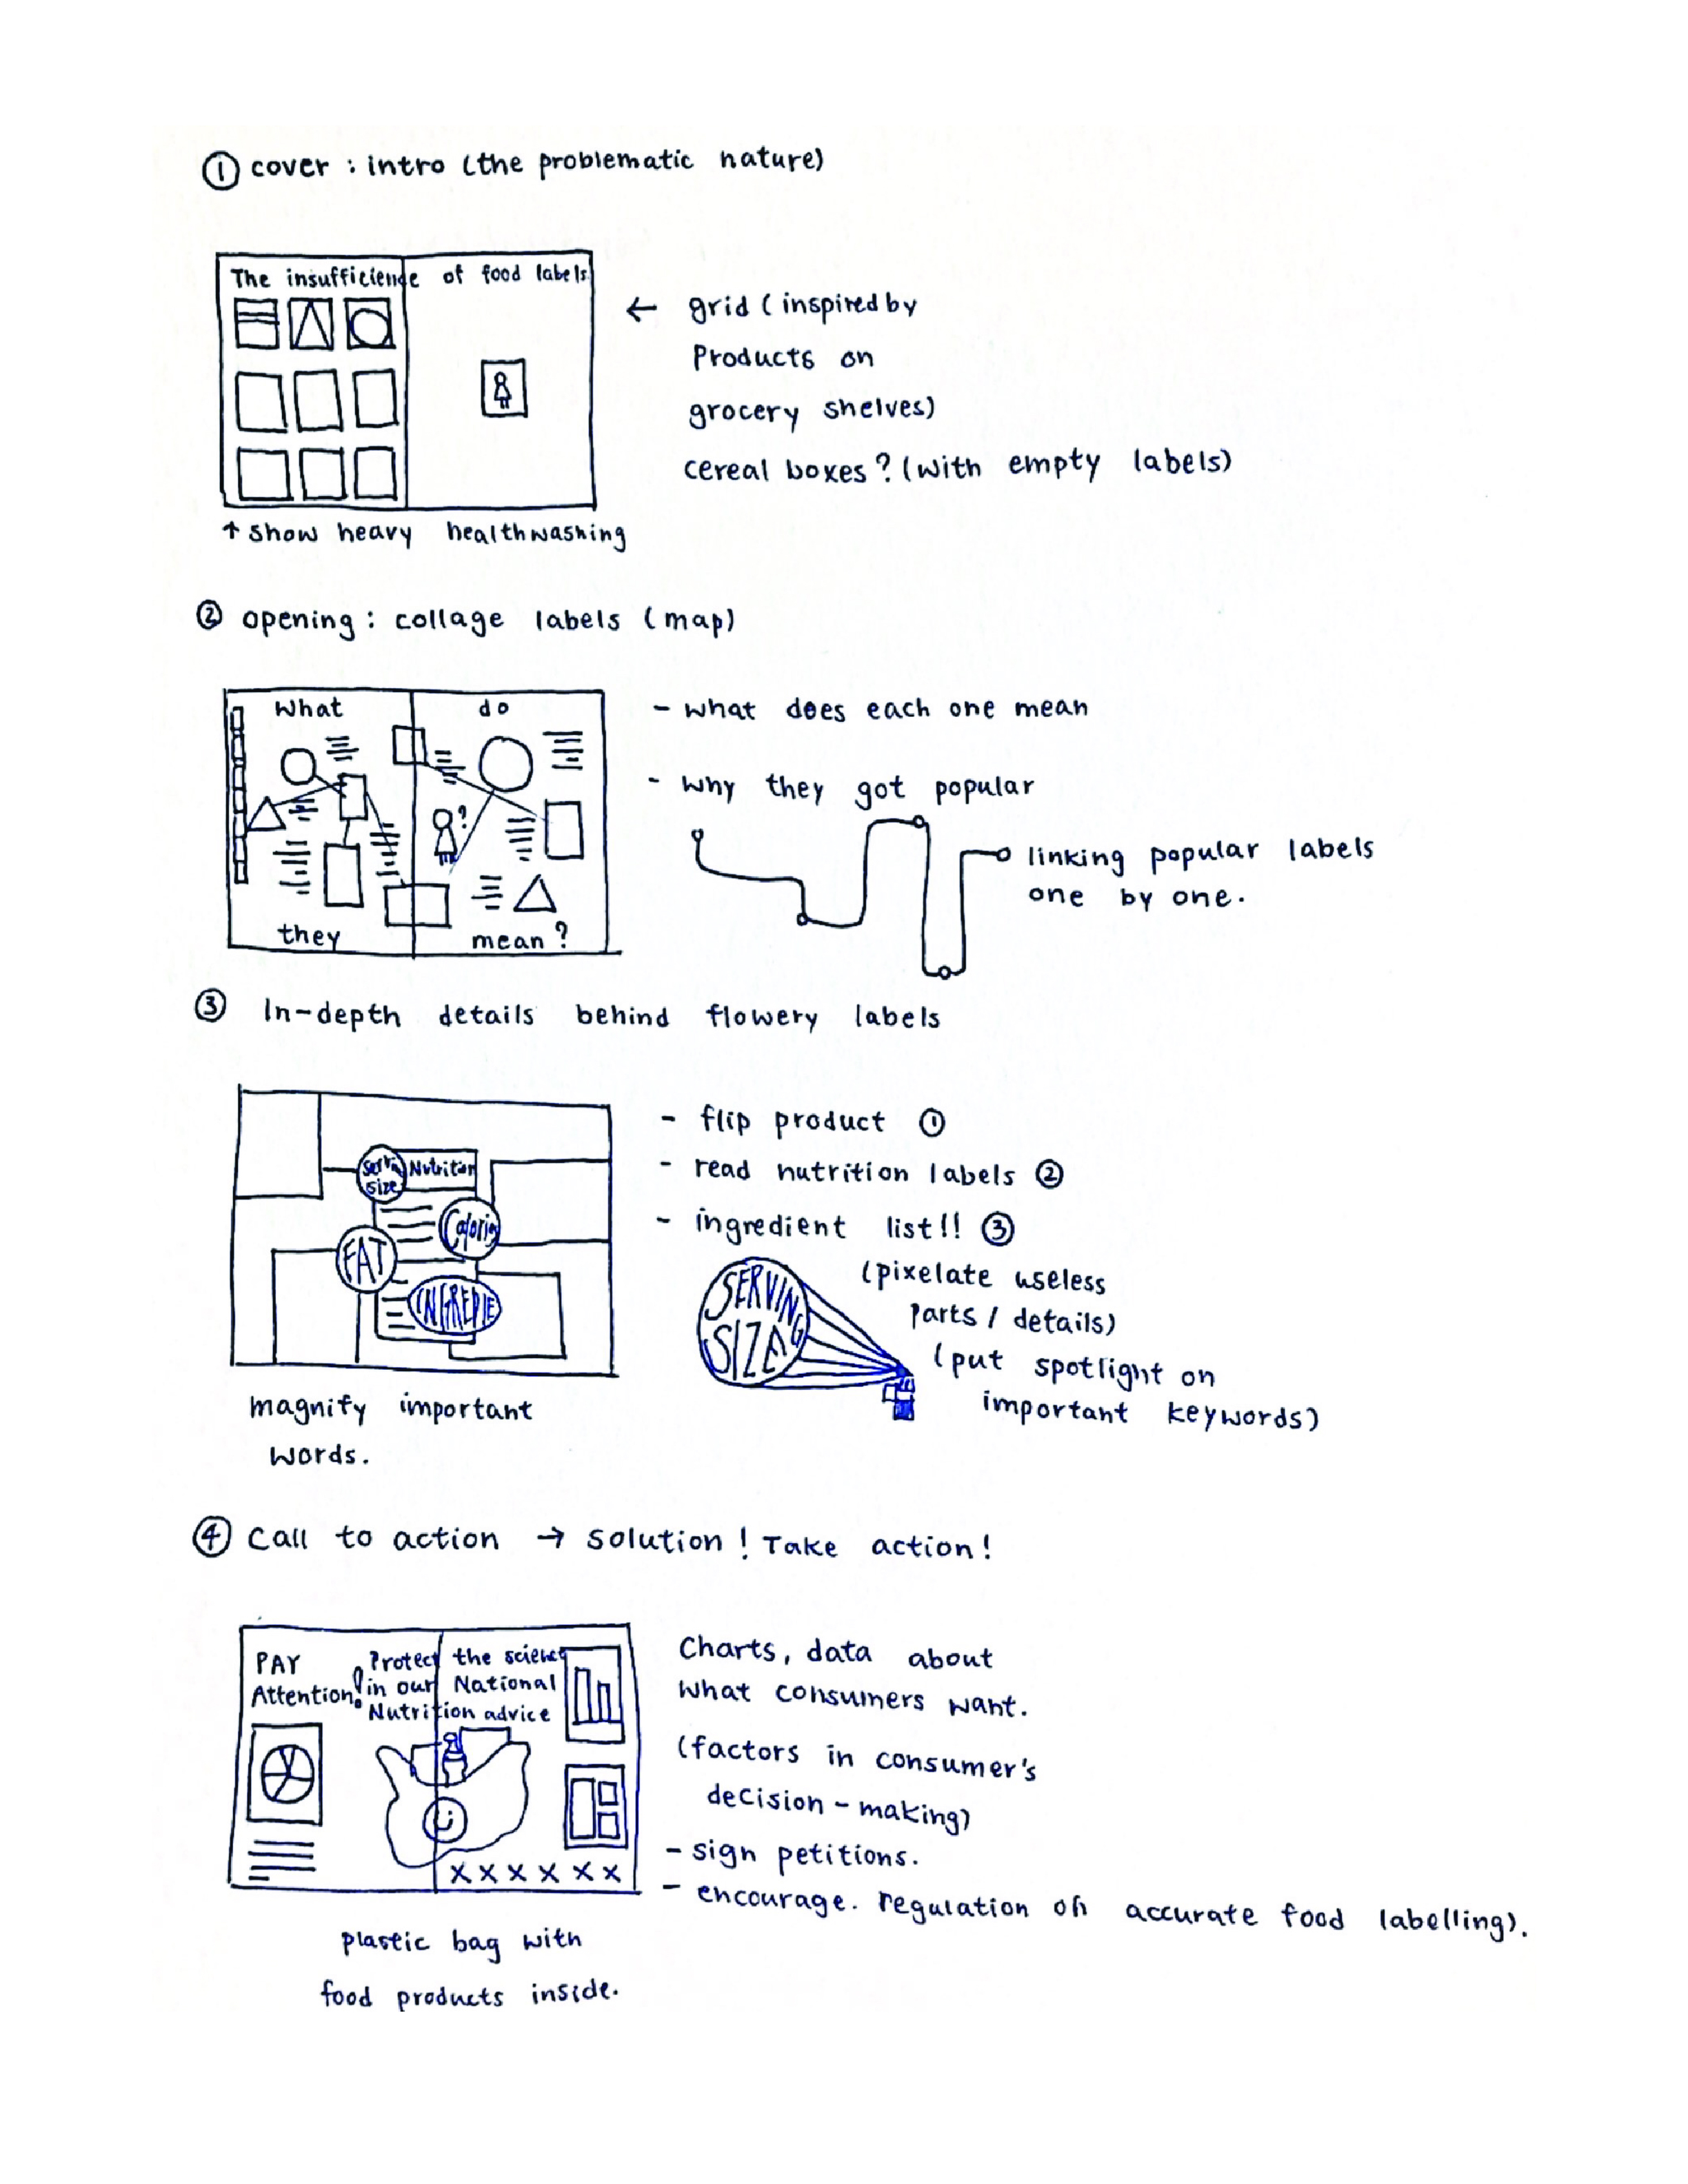 ① cover : intro (the problematic nature)
The insufficience of food labels
← grid (inspired by
Products on
grocery shelves)
cereal boxes? (with empty labels)
↑ show heavy healthwashing
② opening: collage labels (map)
What do
?
they mean?
- what does each one mean
- why they got popular
linking popular labels
one by one.
③ In-depth details behind flowery labels
Servin size
Nutrition
Calorie
FAT
INGREDIE
- flip product ①
- read nutrition labels ②
- ingredient list!! ③
(pixelate useless
parts / details)
(put spotlight on
important keywords)
SERVING
SIZE
magnify important
words.
④ Call to action → solution! Take action!
PAY
Attention!
Protect the science
in our National
Nutrition advice
x x x x x x
Charts, data about
what consumers want.
(factors in consumer's
decision-making)
- sign petitions.
- encourage. regulation on accurate food labelling).
plastic bag with
food products inside.